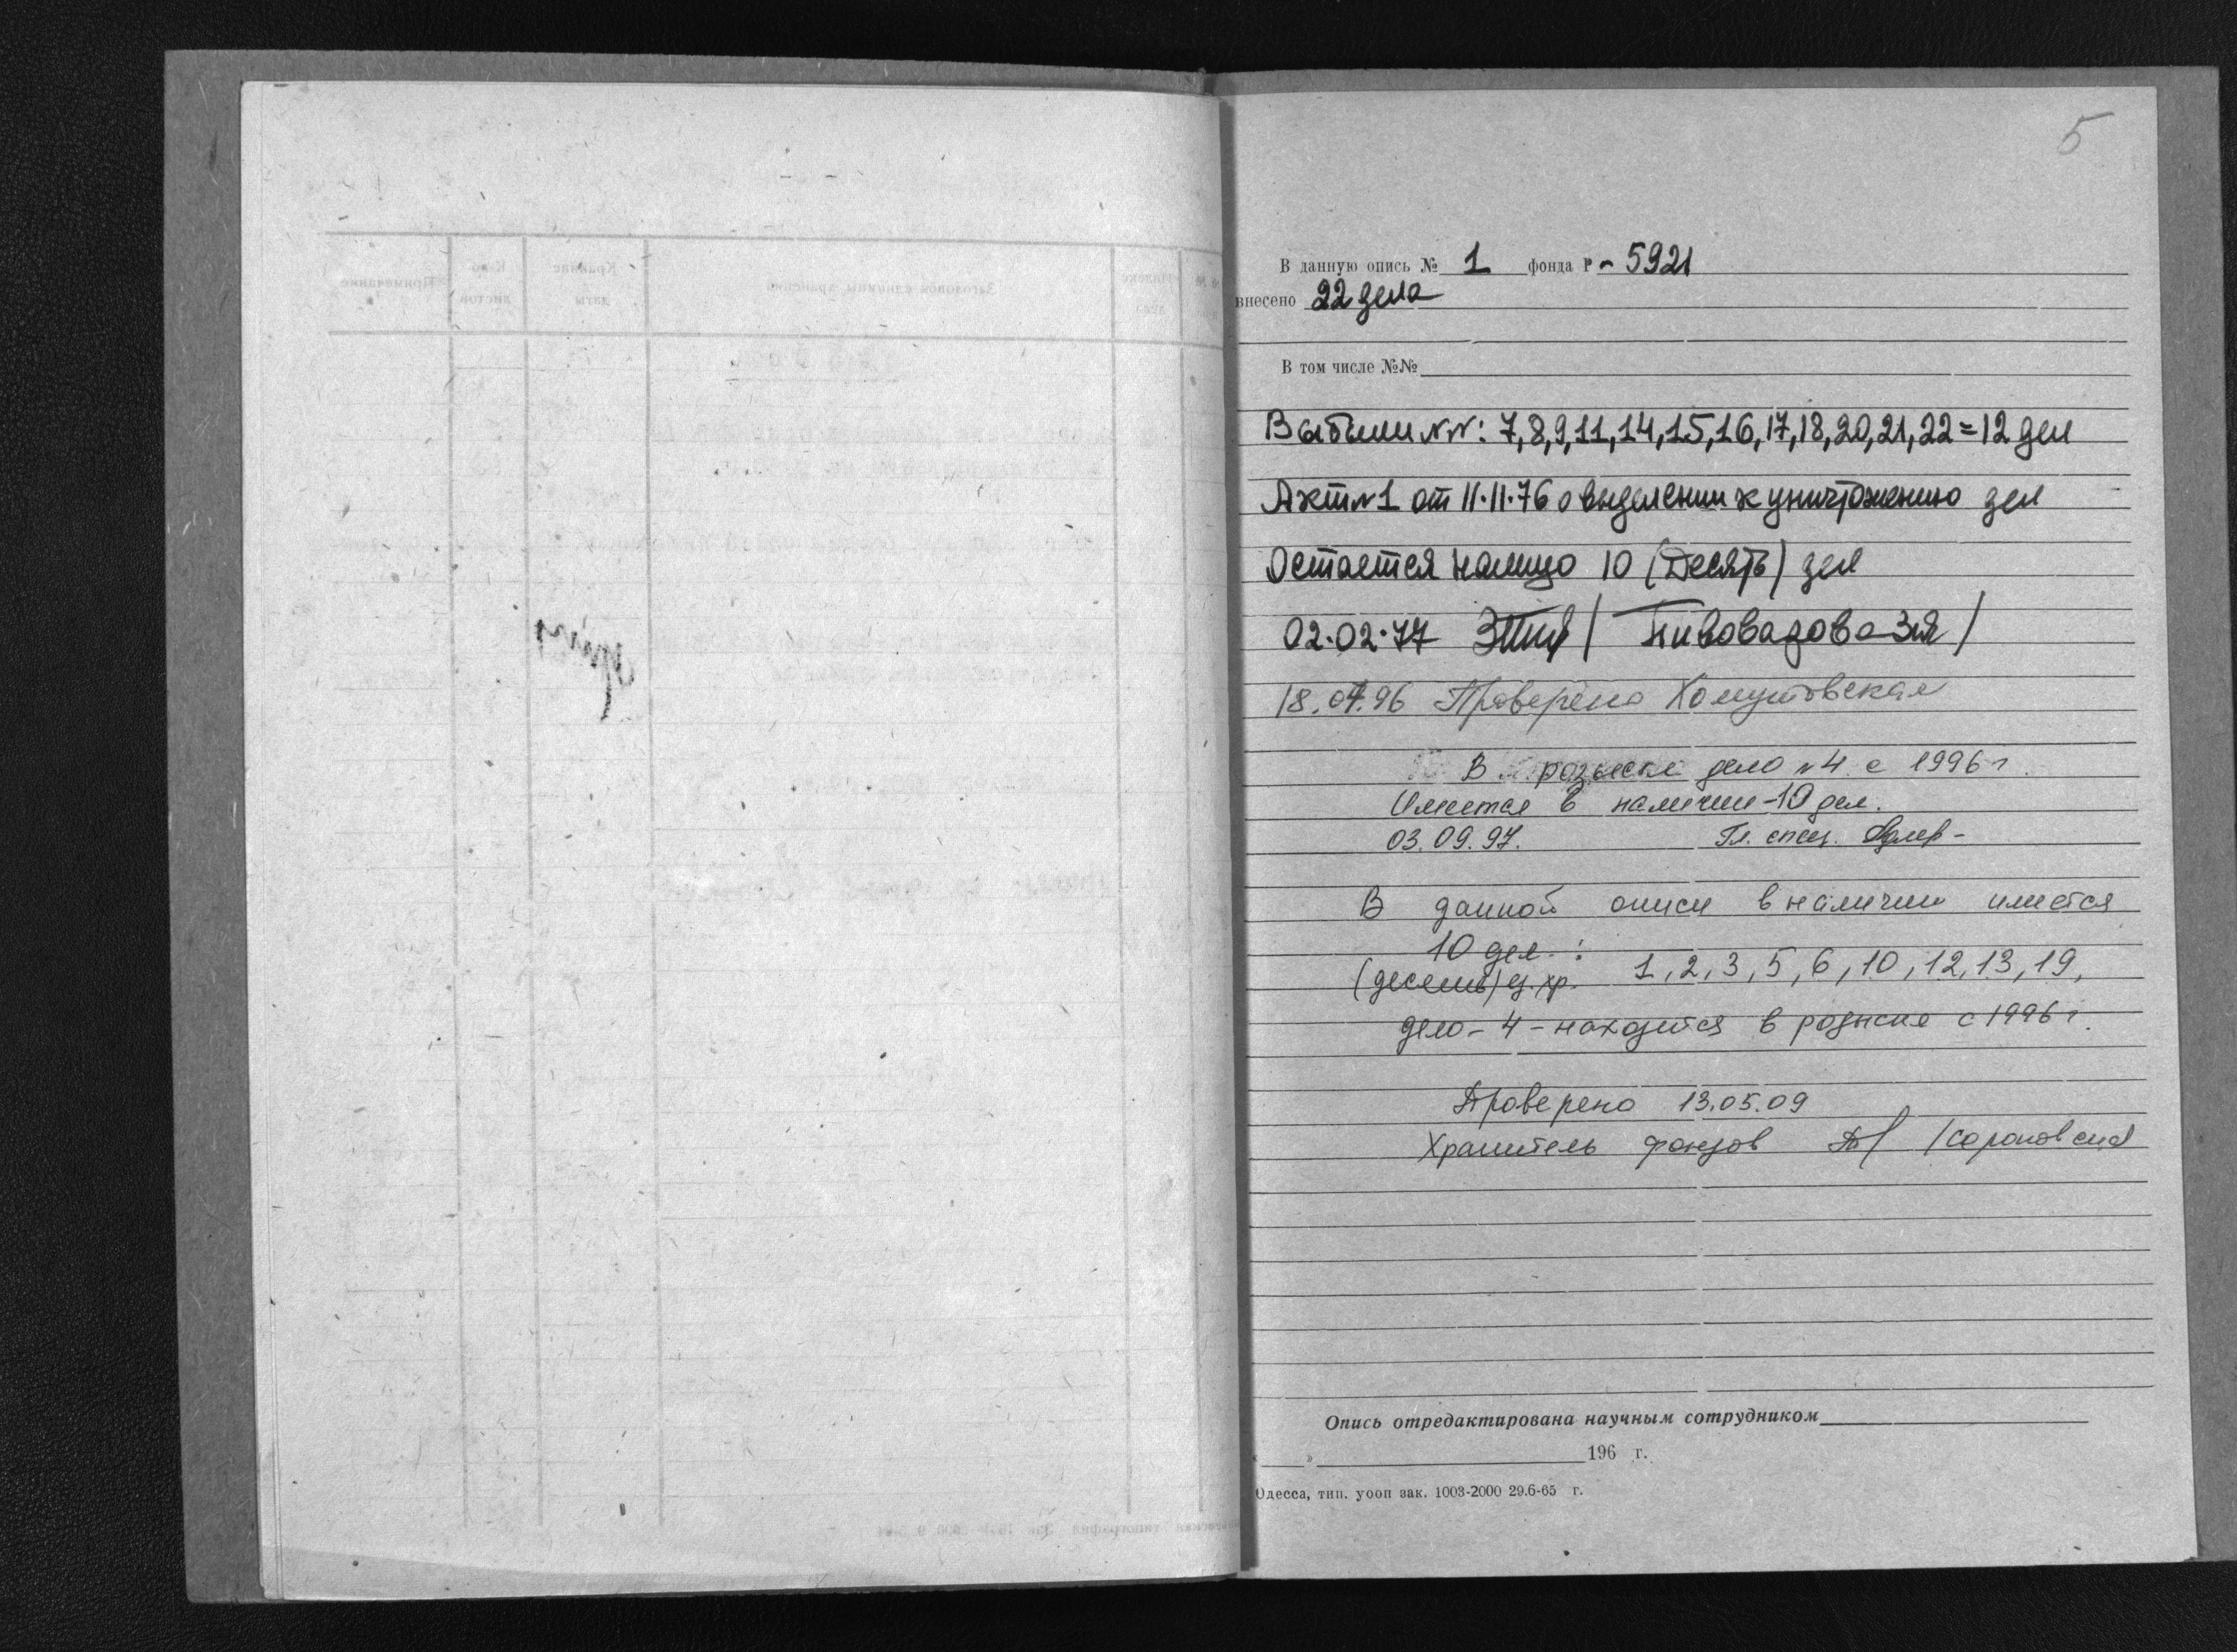 5
В данную опись № 1 фонда Р - 5921
внесено 22 дела
В том числе №№
Выбыли NN: 7,8,9,11,14,15,16,17,18,20,21,22=12 дел
Акт N1 от 11.11.76 о выделении к уничтожению дел
Остается налицо 10 (Десять) дел
02.02.77 / Пивоварова Зия /
18.04.96 Проверено Хомутовская
В розыске дело N4 с 1996 г.
Имеется в наличии - 10 дел.
03.09.97. Гл. спец.
В данной описи в наличии имеется
10 дел :
(десять) ед. хр. 1, 2, 3, 5, 6, 10, 12, 13, 19,
дело - 4 - находится в розыске с 1996 г.
Проверено 13.05.09
Хранитель фондов
Опись отредактирована научным сотрудником
« » 196 г.
Одесса, тип. уооп зак. 1003-2000 29.6-65 г.